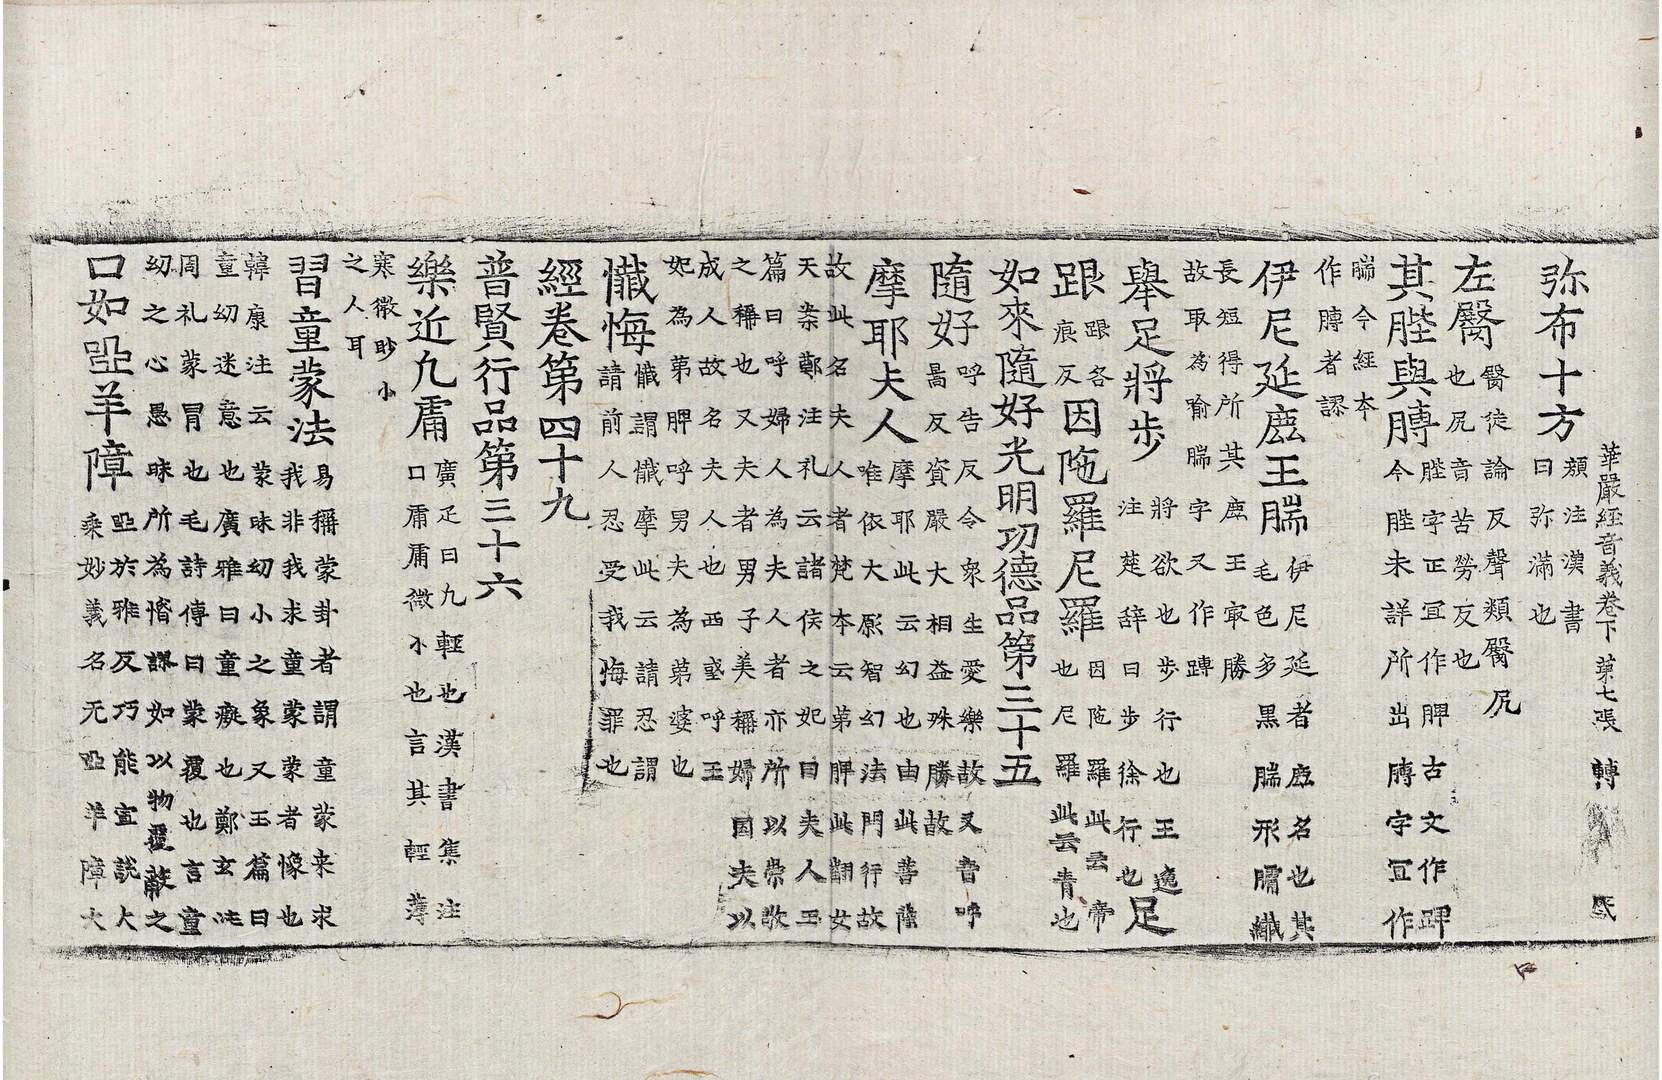 華嚴經音義卷下 苐七張 轉
弥布十方 顔注漢書
曰弥滿也
左臋 臋徒論反聲類臋尻
也尻音苦勞反也
其䏶與膞 䏶字正冝作髀古文作䠋
今䏶未詳所出膞字冝作
腨今經本
作膞者謬
伊尼延鹿王腨 伊尼延者鹿名也其
毛色多黒腨形𦟛纖
長短得所其鹿王冣勝
故取為喻腨字又作䏝
舉足將步 將欲也步行也王逸
注楚辞曰步徐行也 足
跟 跟各
痕反 因陁羅尼羅 因陁羅此云帝
也尼羅此云青也
如來隨好光明功德品第三十五
隨好 呼告反令衆生愛樂故又音呼
暠反資嚴大相益殊勝故
摩耶夫人 摩耶此云幻也由此菩薩
唯依大願智幻法門行故
故此名夫人者梵本云第脾此翻女
天案鄭注礼云諸侯之妃曰夫人玉
篇曰呼婦人為夫人者亦所以崇敬
之稱也又夫者男子美稱婦因夫以
成人故名夫人也西域呼王
妃為第脾呼男夫為第婆也
懺悔 懺謂懺摩此云請忍謂
請前人忍受我悔罪也
經卷第四十九
普賢行品第三十六
樂近凡庸 廣疋曰凡輕也漢書集注
曰庸庸微小也言其輕薄
寒微眇小
之人耳
習童蒙法 易稱蒙卦者謂童蒙来求
我非我求童蒙蒙者懞也
韓康注云蒙昧幼小之象又玉篇曰
童幼迷意也廣雅曰童癡也鄭玄注
周礼蒙冒也毛詩傳曰蒙覆也言童
幼之心愚昧所為懵謬如以物覆蔽之
口如啞羊障 啞於雅反巧能宣説大
乘妙義名无啞羊障大